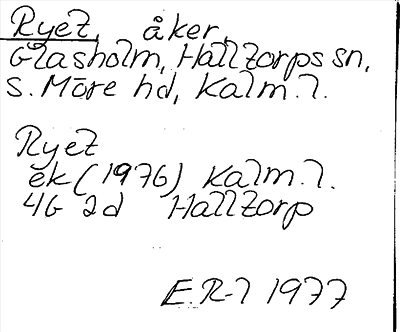 Ryet, åker,
Glasholm, Halltorps sn,
S. Möre hd, Kalm. l.
Ryet
ek (1976) Kalm. l.
4G 2d Halltorp
E.R-l 1977